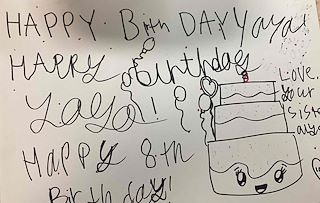 HAPPY BirthDAY Yaya!
HAPPY birthday
Yaya!
HAPPY 8th
Birthday!
Love,
your
Sister